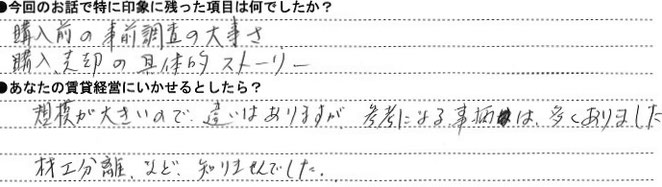 ●今回のお話で特に印象に残った項目は何でしたか?
購入前の事前調査の大事さ
購入、売却の具体的ストーリー
●あなたの賃貸経営にいかせるとしたら?
規模が大きいので、違いはありますが、参考になる事柄は、多くありました
材工分離、など、知りませんでした。